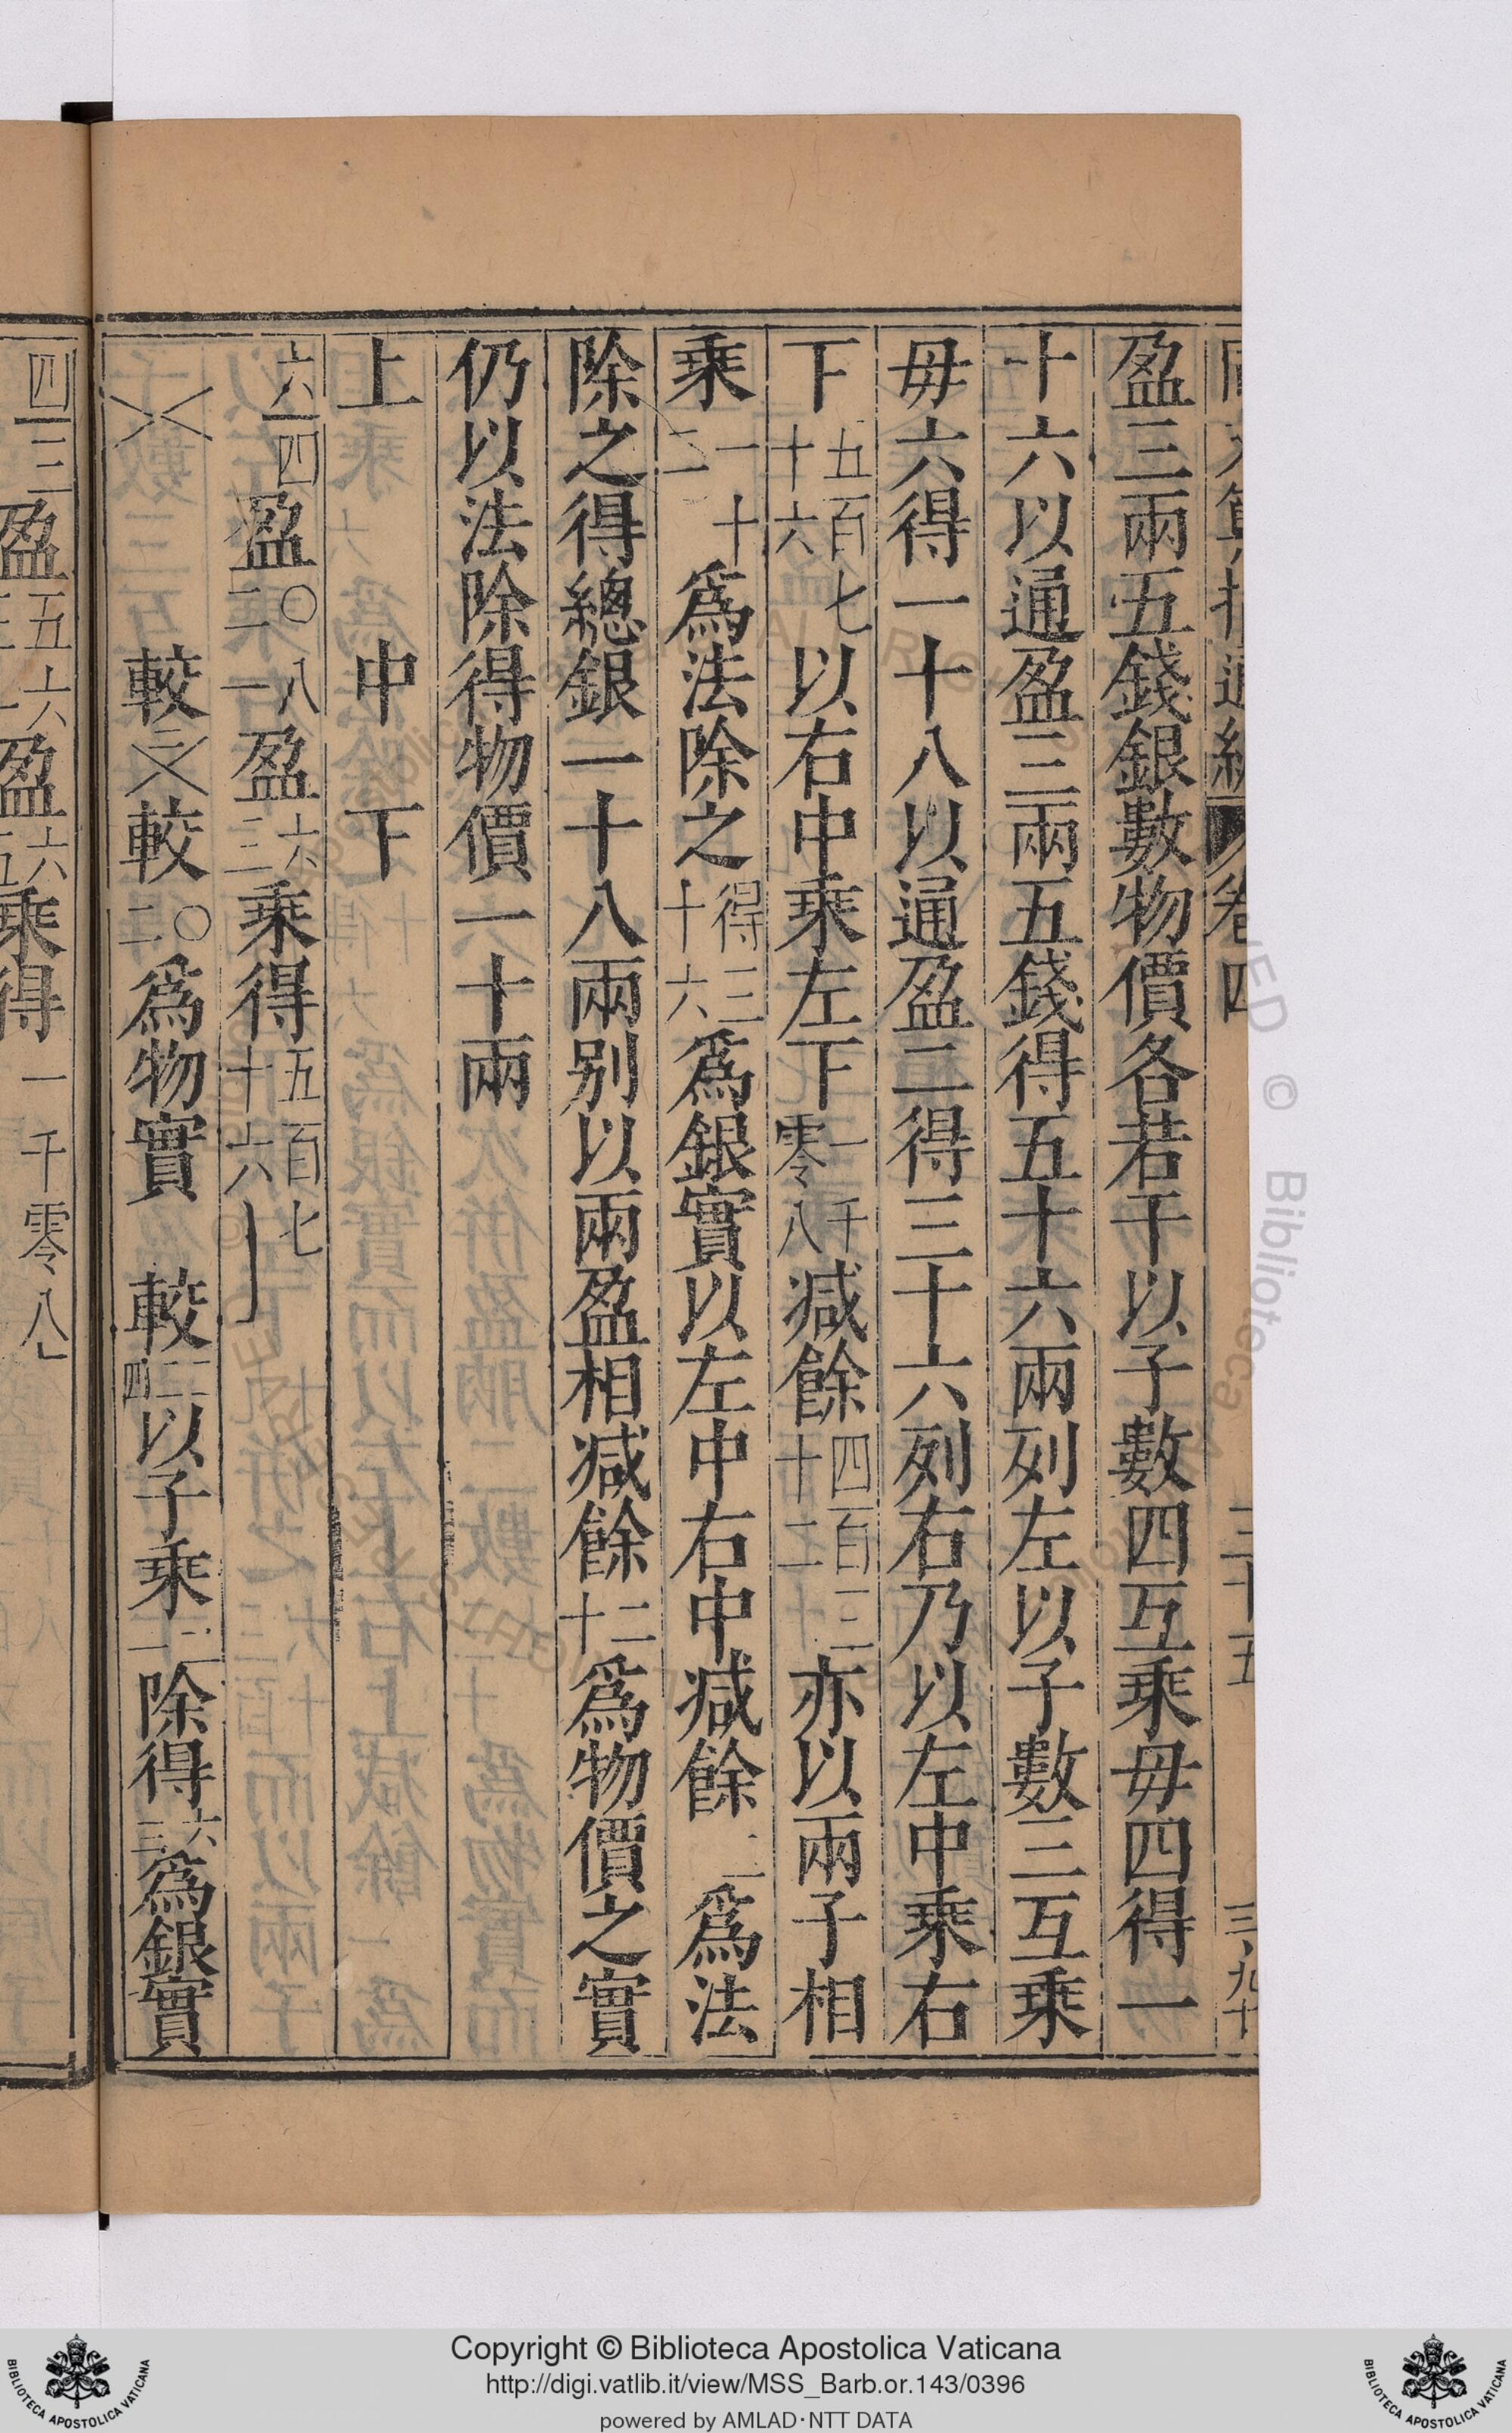 盈三兩五錢銀數物價各若干以子數四互乘毋四得一
十六以通盈三兩五錢得五十六兩列左以子數三互乘
毋六得一十八以通盈二得三十六列右乃以左中乘右
下五百七十六以右中乘左下一千零八減餘四百三十二亦以兩子相
乘一十二爲法除之得三十六爲銀實以左中右中減餘二爲法
除之得總銀一十八兩别以兩盈相減餘二十爲物價之實
仍以法除得物價一十兩
上 中 下
六 四 盈 〇二 八一 盈 六三 乘得五百七十六
較 較 〇二 爲物實 較 以子乘 除得 六三 爲銀實
四 三 盈 五 六 盈 六 乘得一千零八
卷四
Copyright © Biblioteca Apostolica Vaticana
http://digi.vatlib.it/view/MSS_Barb.or.143/0396
powered by AMLAD·NTT DATA
BIBLIOTECA APOSTOLICA VATICANA
BIBLIOTECA APOSTOLICA VATICANA